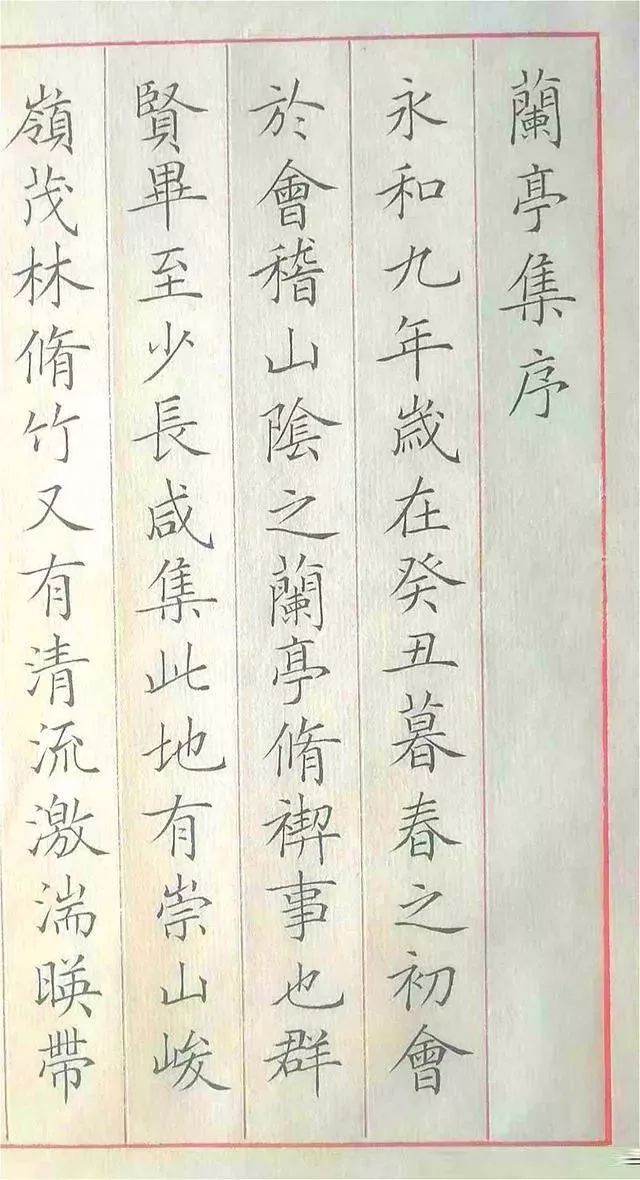 蘭亭集序
永和九年歲在癸丑暮春之初會
於會稽山陰之蘭亭脩禊事也群
賢畢至少長咸集此地有崇山峻
嶺茂林脩竹又有清流激湍暎帶